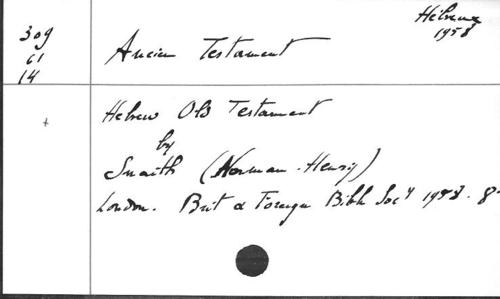 Hébreu
1958
309
61
14
Ancien Testament
Hebrew Old Testament
by
Snaith (Norman-Henry)
London. Brit & Foreign Bible Socy 1958. 8°